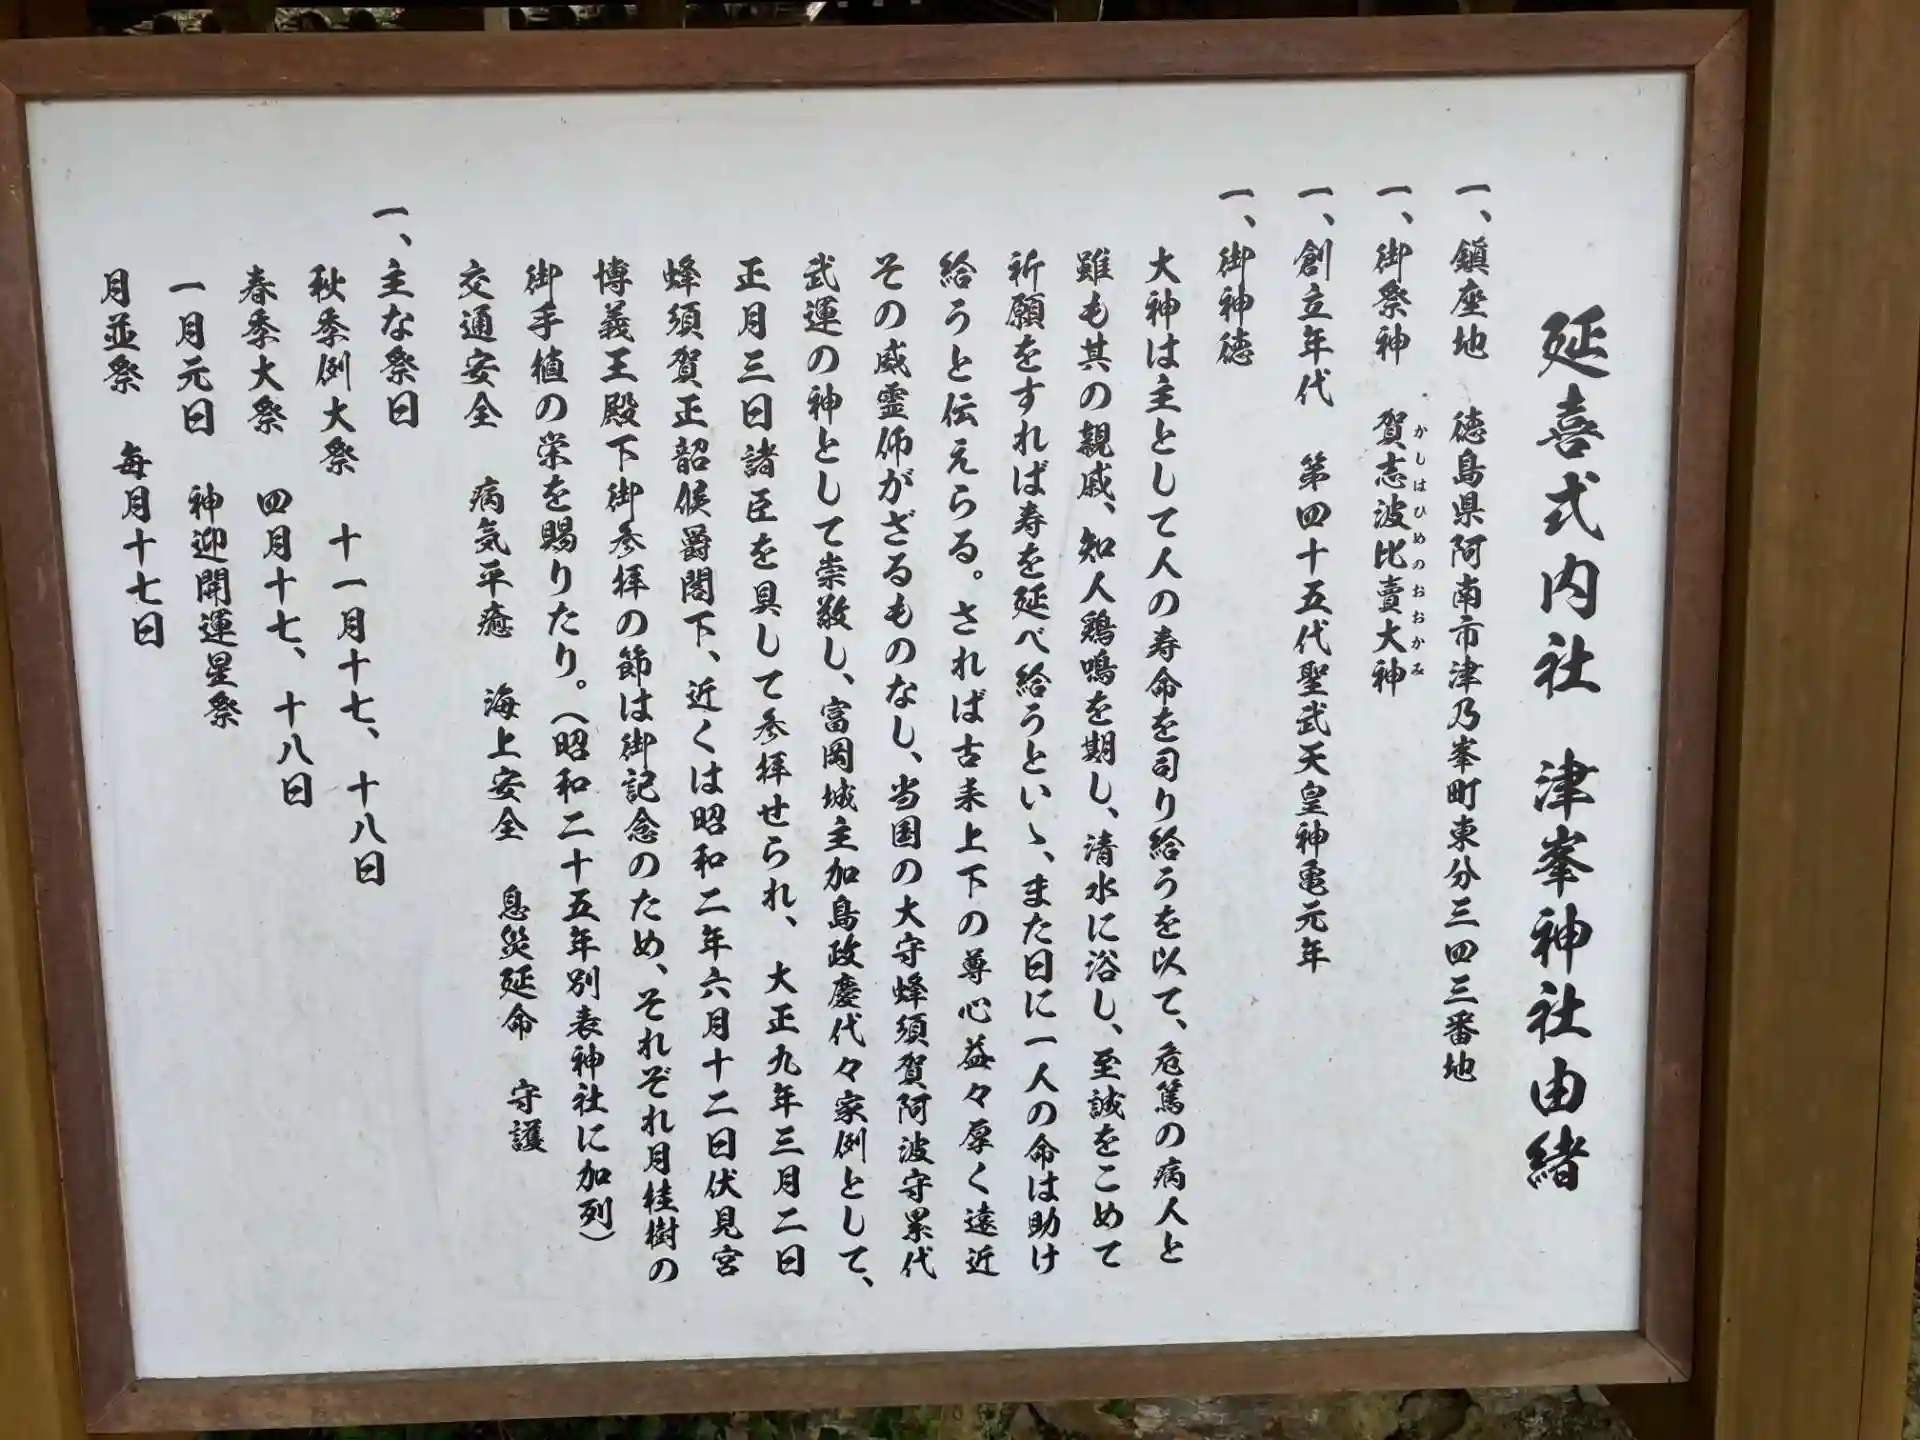 延喜式内社　津峯神社由緒
一、鎮座地　徳島県阿南市津乃峯町東分三四三番地
一、御祭神　賀志波比賣大神
かしはひめのおおかみ
一、創立年代　第四十五代聖武天皇神亀元年
一、御神徳
大神は主として人の寿命を司り給うを以て、危篤の病人と
雖も其の親戚、知人鶏鳴を期し、清水に浴し、至誠をこめて
祈願をすれば寿を延べ給うといゝ、また日に一人の命は助け
給うと伝えらる。されば古来上下の尊心益々厚く遠近
その威霊仰がざるものなし、当国の大守蜂須賀阿波守累代
武運の神として崇敬し、富岡城主加島政慶代々家例として、
正月三日諸臣を具して参拝せられ、大正九年三月二日
蜂須賀正韶侯爵閣下、近くは昭和二年六月十二日伏見宮
博義王殿下御参拝の節は御記念のため、それぞれ月桂樹の
御手植の栄を賜りたり。（昭和二十五年別表神社に加列）
交通安全　病気平癒　海上安全　息災延命　守護
一、主な祭日
秋季例大祭　十一月十七、十八日
春季大祭　四月十七、十八日
一月元日　神迎開運星祭
月並祭　毎月十七日